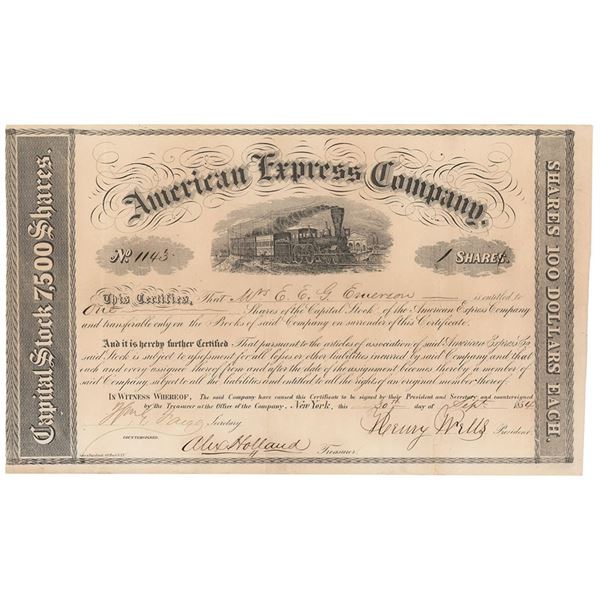 American Express Company.
Capital Stock 7,500 Shares.
SHARES 100 DOLLARS EACH.
No 1143
1 SHARES.
This Certifies, That Mrs E. E. G. Emerson is entitled to
One Shares of the Capital Stock of the American Express Company
and transferable only on the Books of said Company on surrender of this Certificate.
And it is hereby further Certified That pursuant to the articles of association of said American Express Co
said Stock is subject to assessment for all losses or other liabilities incurred by said Company and that
each and every assignee thereof from and after the date of the assignment becomes thereby a member of
said Company, subject to all the liabilities and entitled to all the rights of an original member thereof.
IN WITNESS WHEREOF, The said Company have caused this Certificate to be signed by their President and Secretary and countersigned
by the Treasurer at the Office of the Company, New York, this 20th day of Sept 1854
Secretary
Henry Wells President
COUNTERSIGNED.
Alex Holland Treasurer